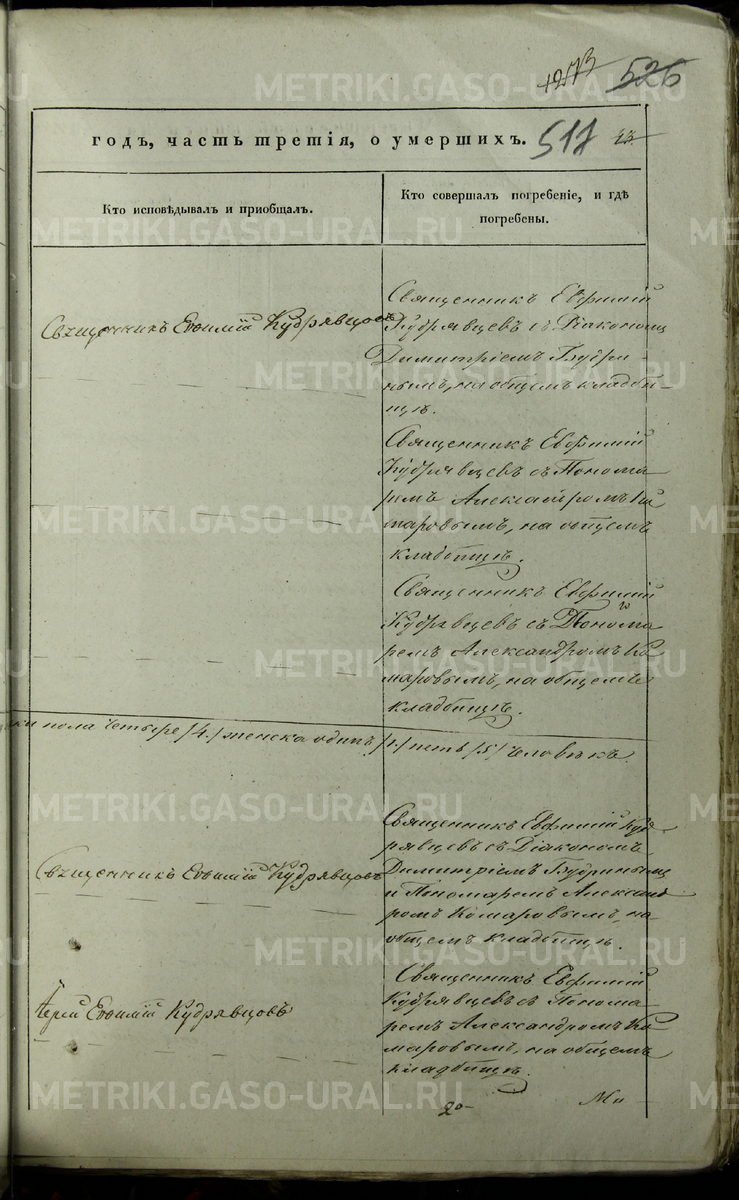 1273 526
годъ, часть третія, о умершихъ. 517 43
Кто исповѣдывалъ и пріобщалъ.
Кто совершалъ погребеніе, и гдѣ
погребены.
Священникъ Евѳимій Кудрявцовъ
Священникъ Евфимій
Кудрявцевъ съ Діакономъ
Димитріемъ Будри-
нымъ, на общемъ кладби-
щѣ.
Священникъ Евфимій
Кудрявцевъ съ Понома
ремъ Александромъ Ко
маровымъ, на общемъ
кладбищѣ.
Священникъ Евфимій
Кудрявцевъ съ Понома
ремъ Александромъ Ко
маровымъ, на общемъ
кладбищѣ.
ска пола четыре /4./ женска одинъ /1./ пять /5./ человѣкъ.
Священникъ Евѳимій Кудрявцовъ
Священникъ Евфимій Куд
рявцевъ съ Діакономъ
Димитріемъ Будринымъ
и Пономаремъ Александ
ромъ Комаровымъ, на
общемъ кладбищѣ.
Іерей Евѳимій Кудрявцовъ
Священникъ Евфимій
Кудрявцевъ съ Понома
ремъ Александромъ Ко
маровымъ, на общемъ
кладбищѣ.
METRIKI.GASO-URAL.RU